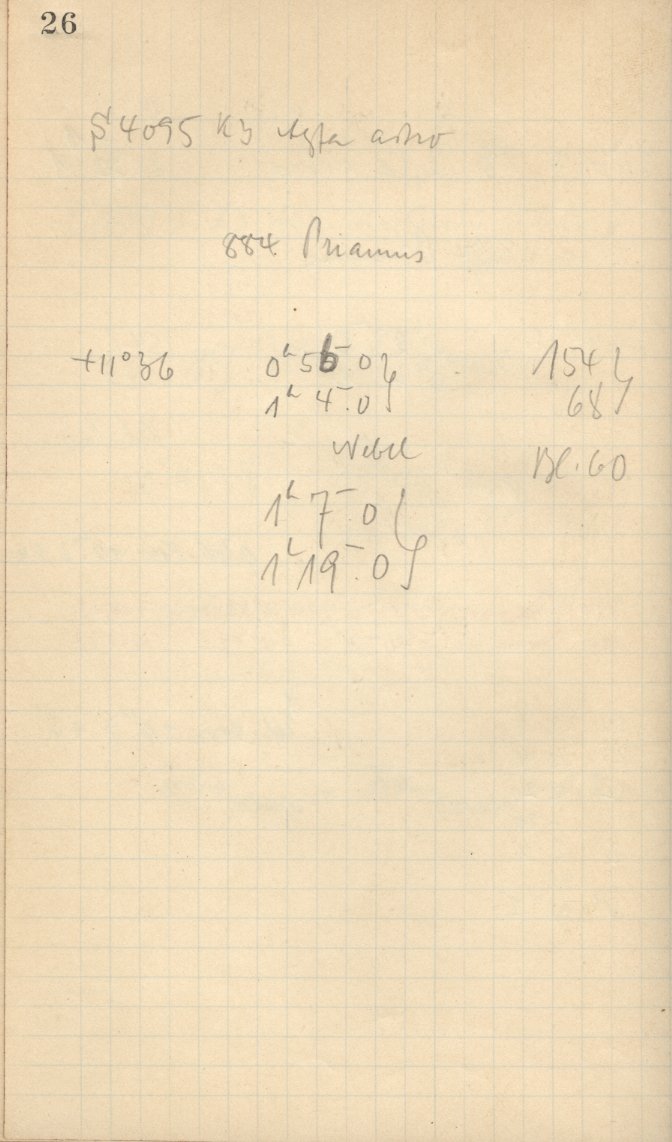 26
S 4095 K3 Agfa astro
884 Priamus
+11°36 0ʰ56ᵐ.0 154
1ʰ 4ᵐ.0 68
Nebel Bl. 60
1ʰ 7ᵐ.0
1ʰ19ᵐ.0